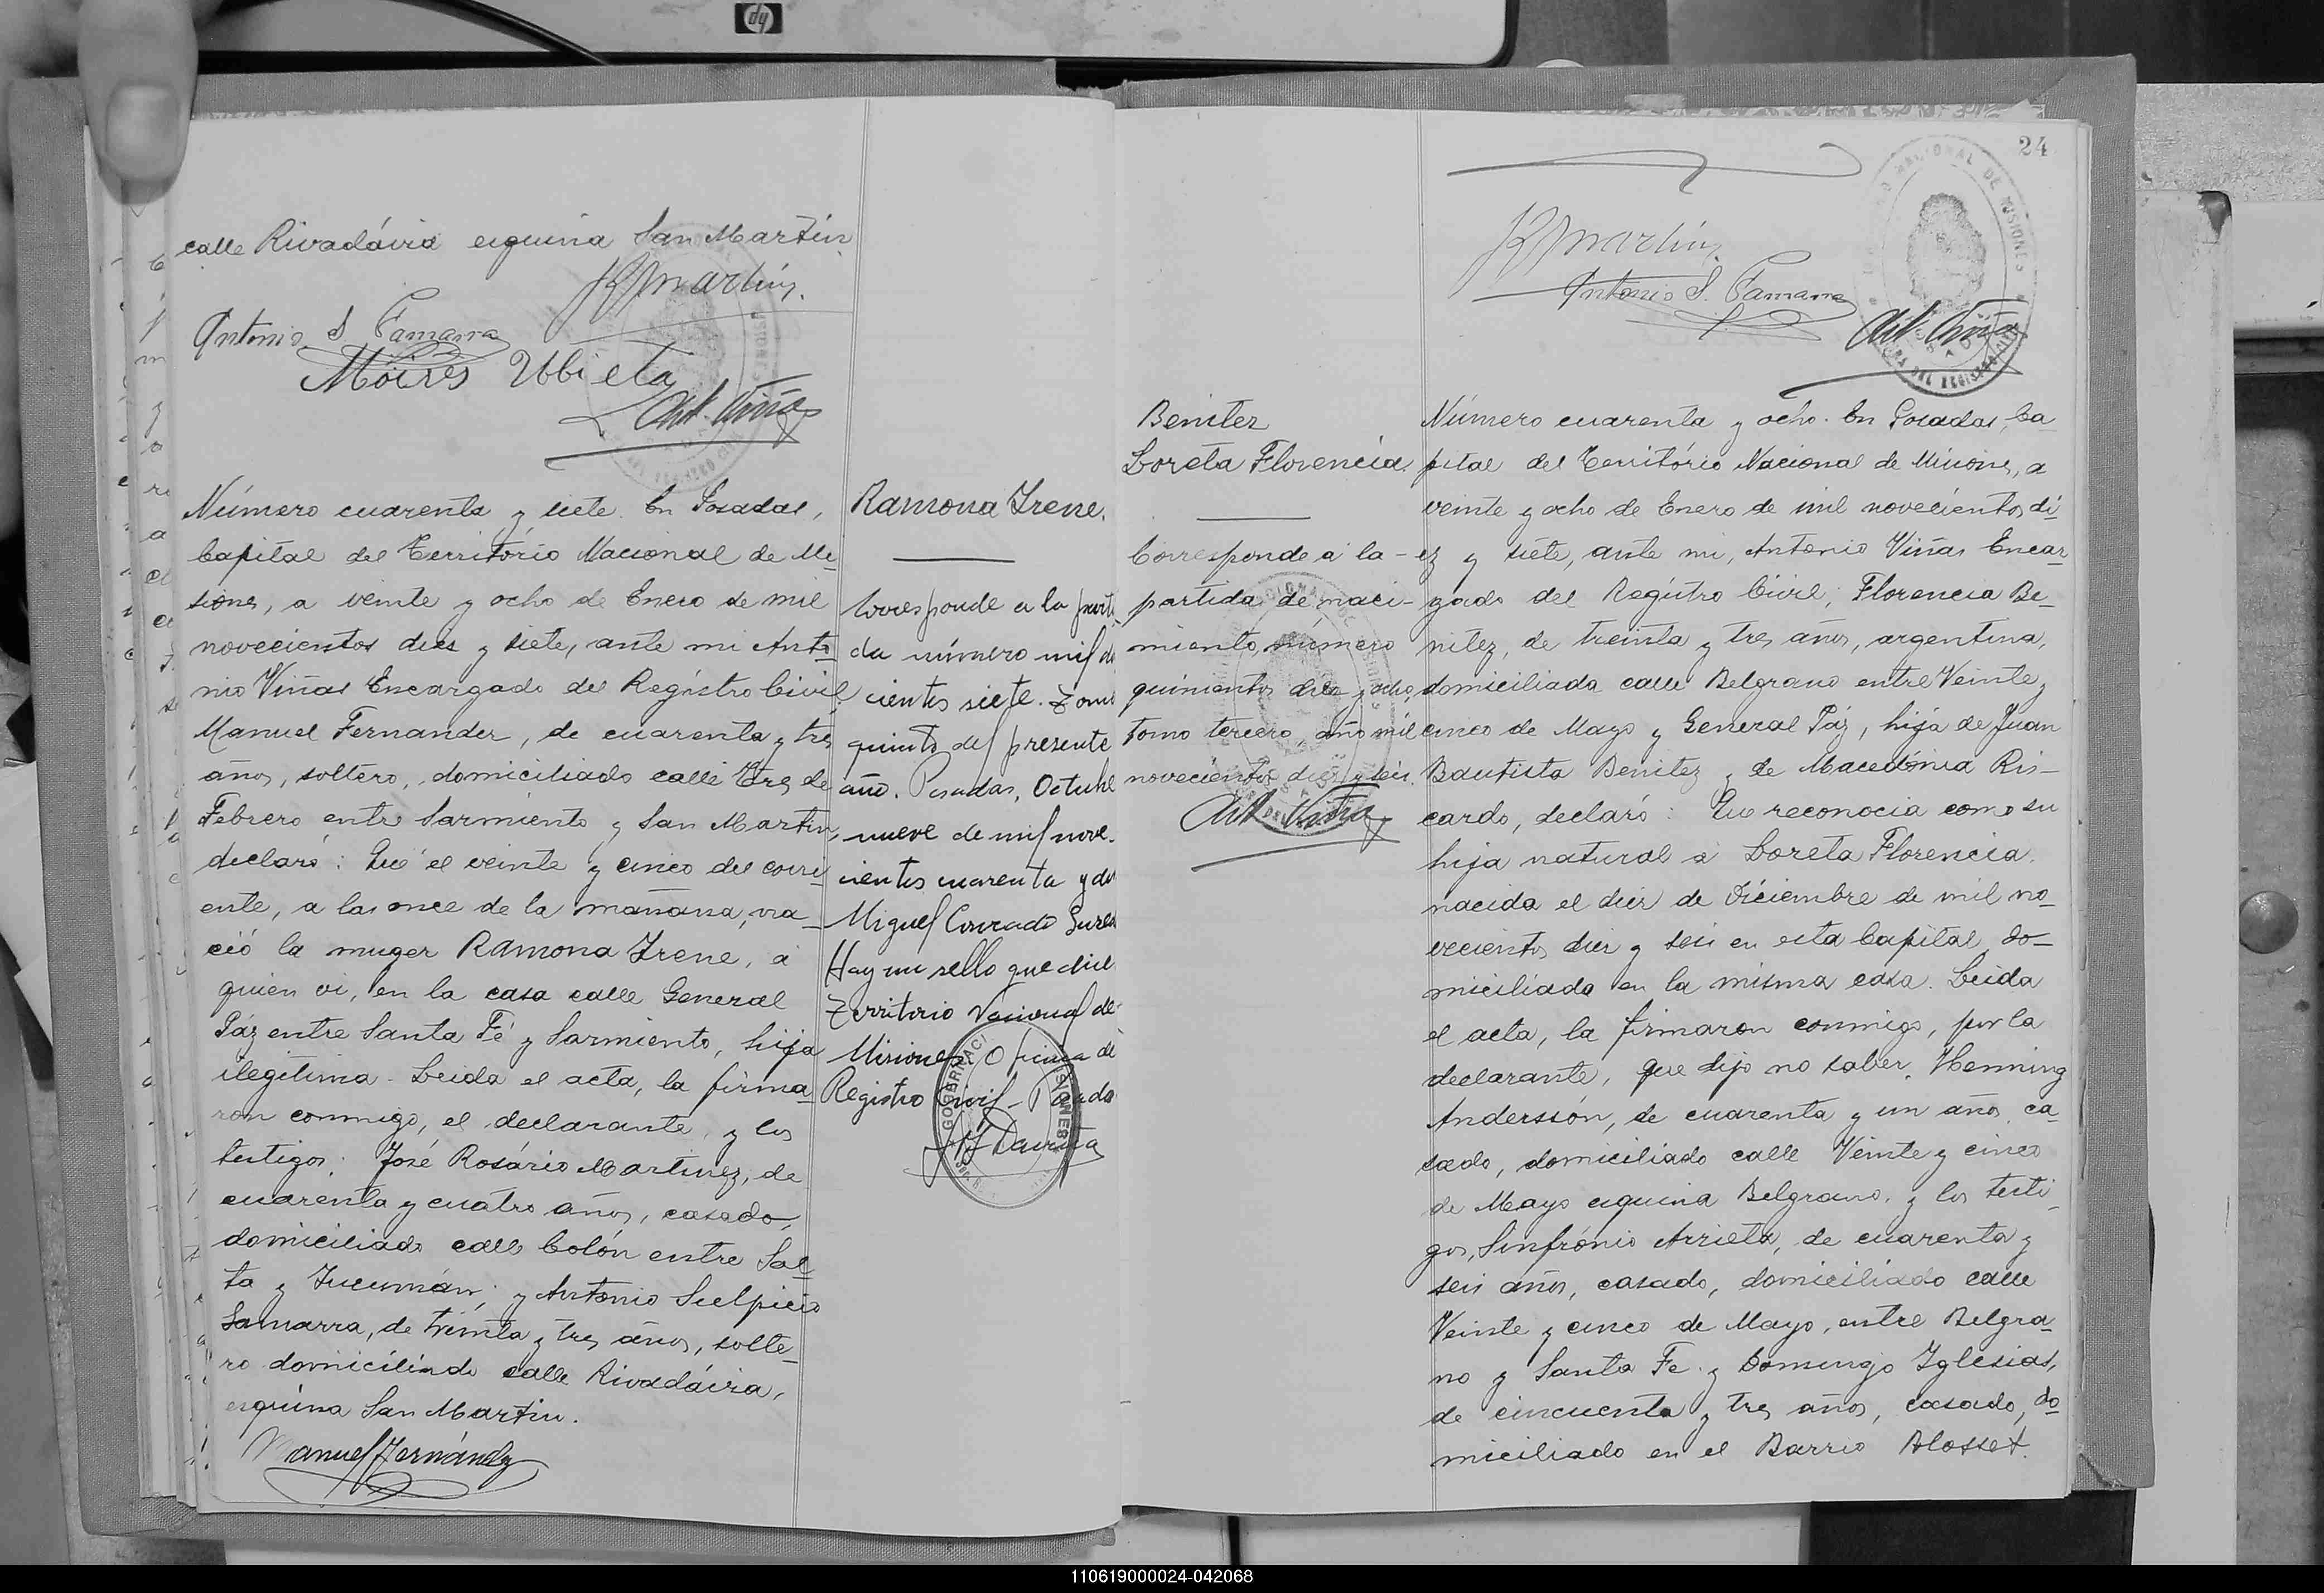 hp
calle Rivadávia esquina San Martin
JRMartin,
Antonio S Gamarra
Moises Ubbieta
Ant. Viñas
Número cuarenta y siete. En Posadas,
Capital del Território Nacional de Mi-
siones, a veinte y ocho de Enero de mil
novecientos diez y siete, ante mi Anto-
nio Viñas Encargado del Registro Civil
Manuel Fernandez, de cuarenta y tres
años, soltéro, domiciliado calle Tres de
Febrero entre Sarmiento y San Martin,
declaró: Que el veinte y cinco del corri-
ente, a las once de la mañana, na-
ció la muger Ramona Irene, a
quien vi, en la casa calle General
Páz entre Santa Fé y Sarmiento, hija
ilegitima. Leida el acta, la firma-
ron conmigo, el declarante, y los
testigos: José Rosário Martinez, de
cuarenta y cuatro años, casado,
domiciliado calle Colón entre Sal-
ta y Tucumán; y Antonio Sulpicio
Gamarra, de treinta y tres años, solte-
ro domiciliado calle Rivadávia,
esquina San Martin.
Manuel Fernández
Ramona Irene.
Corresponde a la parti-
da número mil do
cientos siete. Tomo
quinto del presente
año. Posadas, Octubre
nueve de mil nove-
cientos cuarenta y dos
Miguel Conrado
Hay un sello que dice
Territorio Nacional de
Misiones. Oficina de
Registro Civil - Posadas
24
JRMartin,
Antonio S. Gamarra
Ant. Viñas
Benitez
Loreta Florencia.
Corresponde a la-
partida de naci-
miento, número
quinientos diez y ocho,
tomo tercero, año mil
novecientos diez y seis.
Ant Viñas
Número cuarenta y ocho. En Posadas, Ca-
pital del Território Nacional de Misiones, a
veinte y ocho de Enero de mil novecientos di-
ez y siete, ante mi, Antonio Viñas Encar-
gado del Registro Civil; Florencia Be-
nitez, de treinta y tres años, argentina,
domiciliada calle Belgrano entre Veinte y
cinco de Mayo y General Páz, hija de Juan
Bautista Benitez y de Macedónia Ris-
cardo, declaró: Que reconocia como su
hija natural a Loreta Florencia,
nacida el diez de Diciembre de mil no-
vecientos diez y seis en esta Capital, do-
miciliada en la misma casa. Leida
el acta, la firmaron conmigo, por la
declarante, que dijo no saber, Henning
Anderssón, de cuarenta y un años, ca-
sado, domiciliado calle Veinte y cinco
de Mayo esquina Belgrano, y los testi-
gos, Sinfrónio Arrieta, de cuarenta y
seis años, casado, domiciliado calle
Veinte y cinco de Mayo, entre Belgra-
no y Santa Fe y Domingo Iglesias,
de cincuenta y tres años, casado, do-
miciliado en el Barrio Blosset.
110619000024-042068